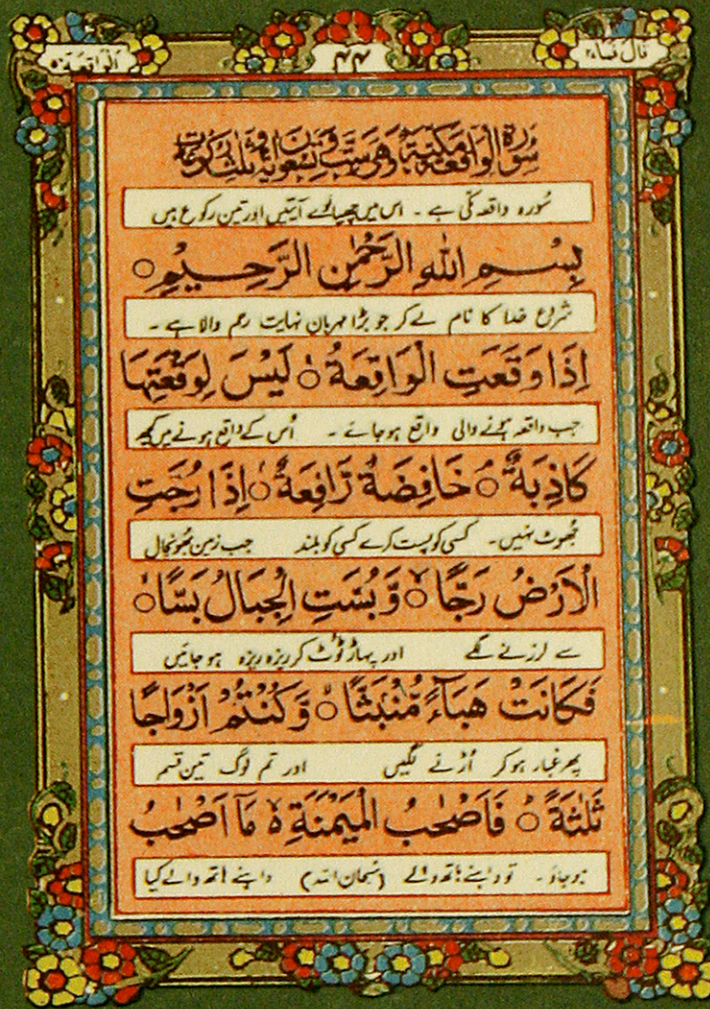 قال فما۲
۴۴
الواقعة۵
سُورَةُ الْوَاقِعَةِ مَكِّيَّةٌ وَّهِيَ سِتٌّ وَّتِسْعُونَ اٰيَةً وَّثَلٰثُ رُكُوعَاتٍ
سُورہ واقعہ مکّی ہے ۔ اس میں چھیانوے آیتیں اور تین رکوع ہیں
بِسْمِ اللهِ الرَّحْمٰنِ الرَّحِيْمِ ○
شروع خدا کا نام لے کر جو بڑا مہربان نہایت رحم والا ہے ۔
اِذَا وَقَعَتِ الْوَاقِعَةُ ○ لَيْسَ لِوَقْعَتِهَا
جب واقعہ ہونے والی واقع ہو جائے ۔ اُس کے واقع ہونے میں کچھ
كَاذِبَةٌ ○ خَافِضَةٌ رَّافِعَةٌ ○ اِذَا رُجَّتِ
جھوٹ نہیں ۔ کسی کو پست کرے کسی کو بلند جب زمین بھونچال
الْاَرْضُ رَجًّا ○ وَّبُسَّتِ الْجِبَالُ بَسًّا ○
سے لرزنے لگے اور پہاڑ ٹوٹ کر ریزہ ریزہ ہو جائیں
فَكَانَتْ هَبَآءً مُّنْۢبَثًّا ○ وَّكُنْتُمْ اَزْوَاجًا
پھر غبار ہو کر اُڑنے لگیں اور تم لوگ تین قسم
ثَلٰثَةً ○ فَاَصْحٰبُ الْمَيْمَنَةِ ۵ مَآ اَصْحٰبُ
ہو جاؤ ۔ تو داہنے ہاتھ والے (سُبحان اللہ) داہنے ہاتھ والے کیا